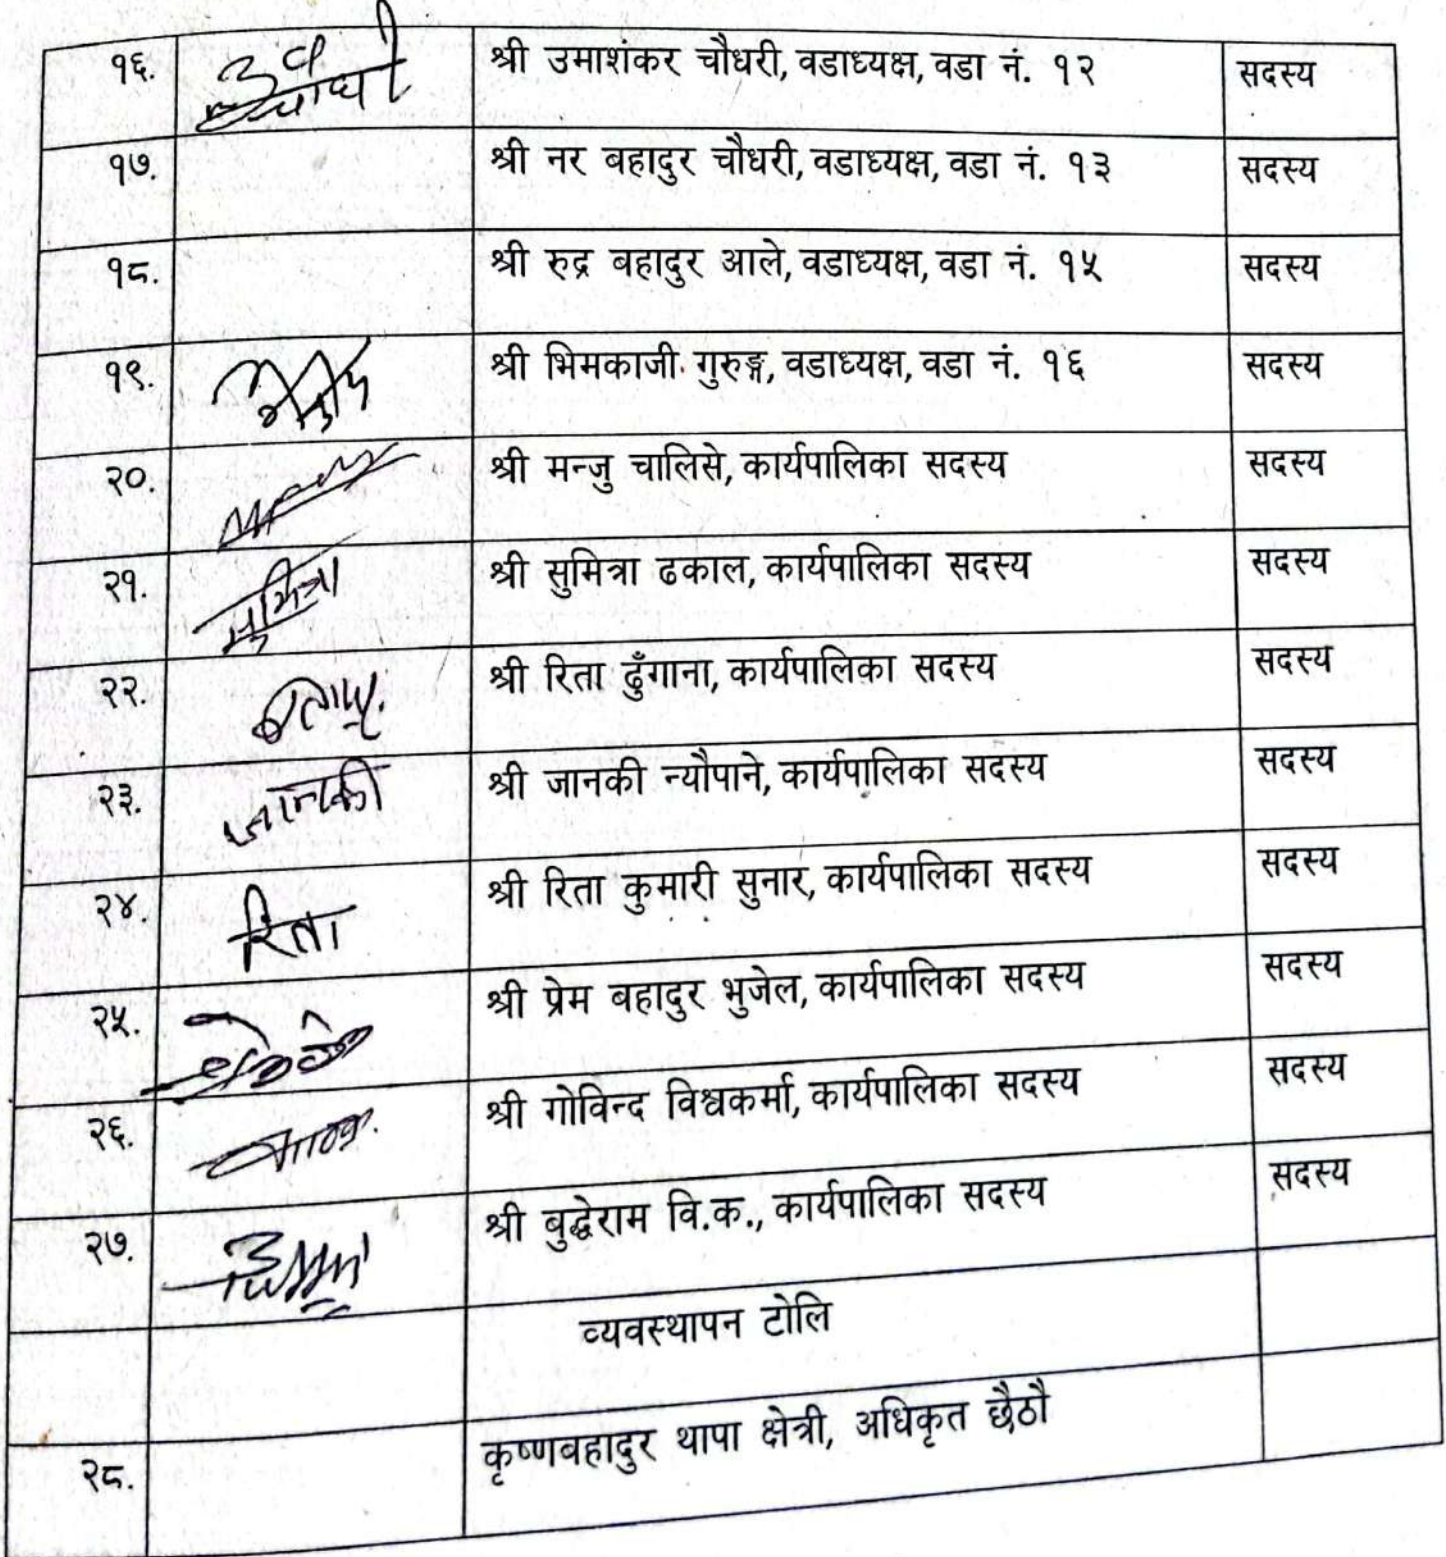 १६. श्री उमाशंकर चौधरी, वडाध्यक्ष, वडा नं. १२ सदस्य
१७. श्री नर बहादुर चौधरी, वडाध्यक्ष, वडा नं. १३ सदस्य
१८. श्री रुद्र बहादुर आले, वडाध्यक्ष, वडा नं. १५ सदस्य
१९. श्री भिमकाजी गुरुङ्ग, वडाध्यक्ष, वडा नं. १६ सदस्य
२०. श्री मन्जु चालिसे, कार्यपालिका सदस्य सदस्य
२१. सुमित्रा श्री सुमित्रा ढकाल, कार्यपालिका सदस्य सदस्य
२२. श्री रिता ढुँगाना, कार्यपालिका सदस्य सदस्य
२३. जानकी श्री जानकी न्यौपाने, कार्यपालिका सदस्य सदस्य
२४. रिता श्री रिता कुमारी सुनार, कार्यपालिका सदस्य सदस्य
२५. श्री प्रेम बहादुर भुजेल, कार्यपालिका सदस्य सदस्य
२६. श्री गोविन्द विश्वकर्मा, कार्यपालिका सदस्य सदस्य
२७. श्री बुद्धेराम वि.क., कार्यपालिका सदस्य सदस्य
व्यवस्थापन टोलि
२८. कृष्णबहादुर थापा क्षेत्री, अधिकृत छैठौ